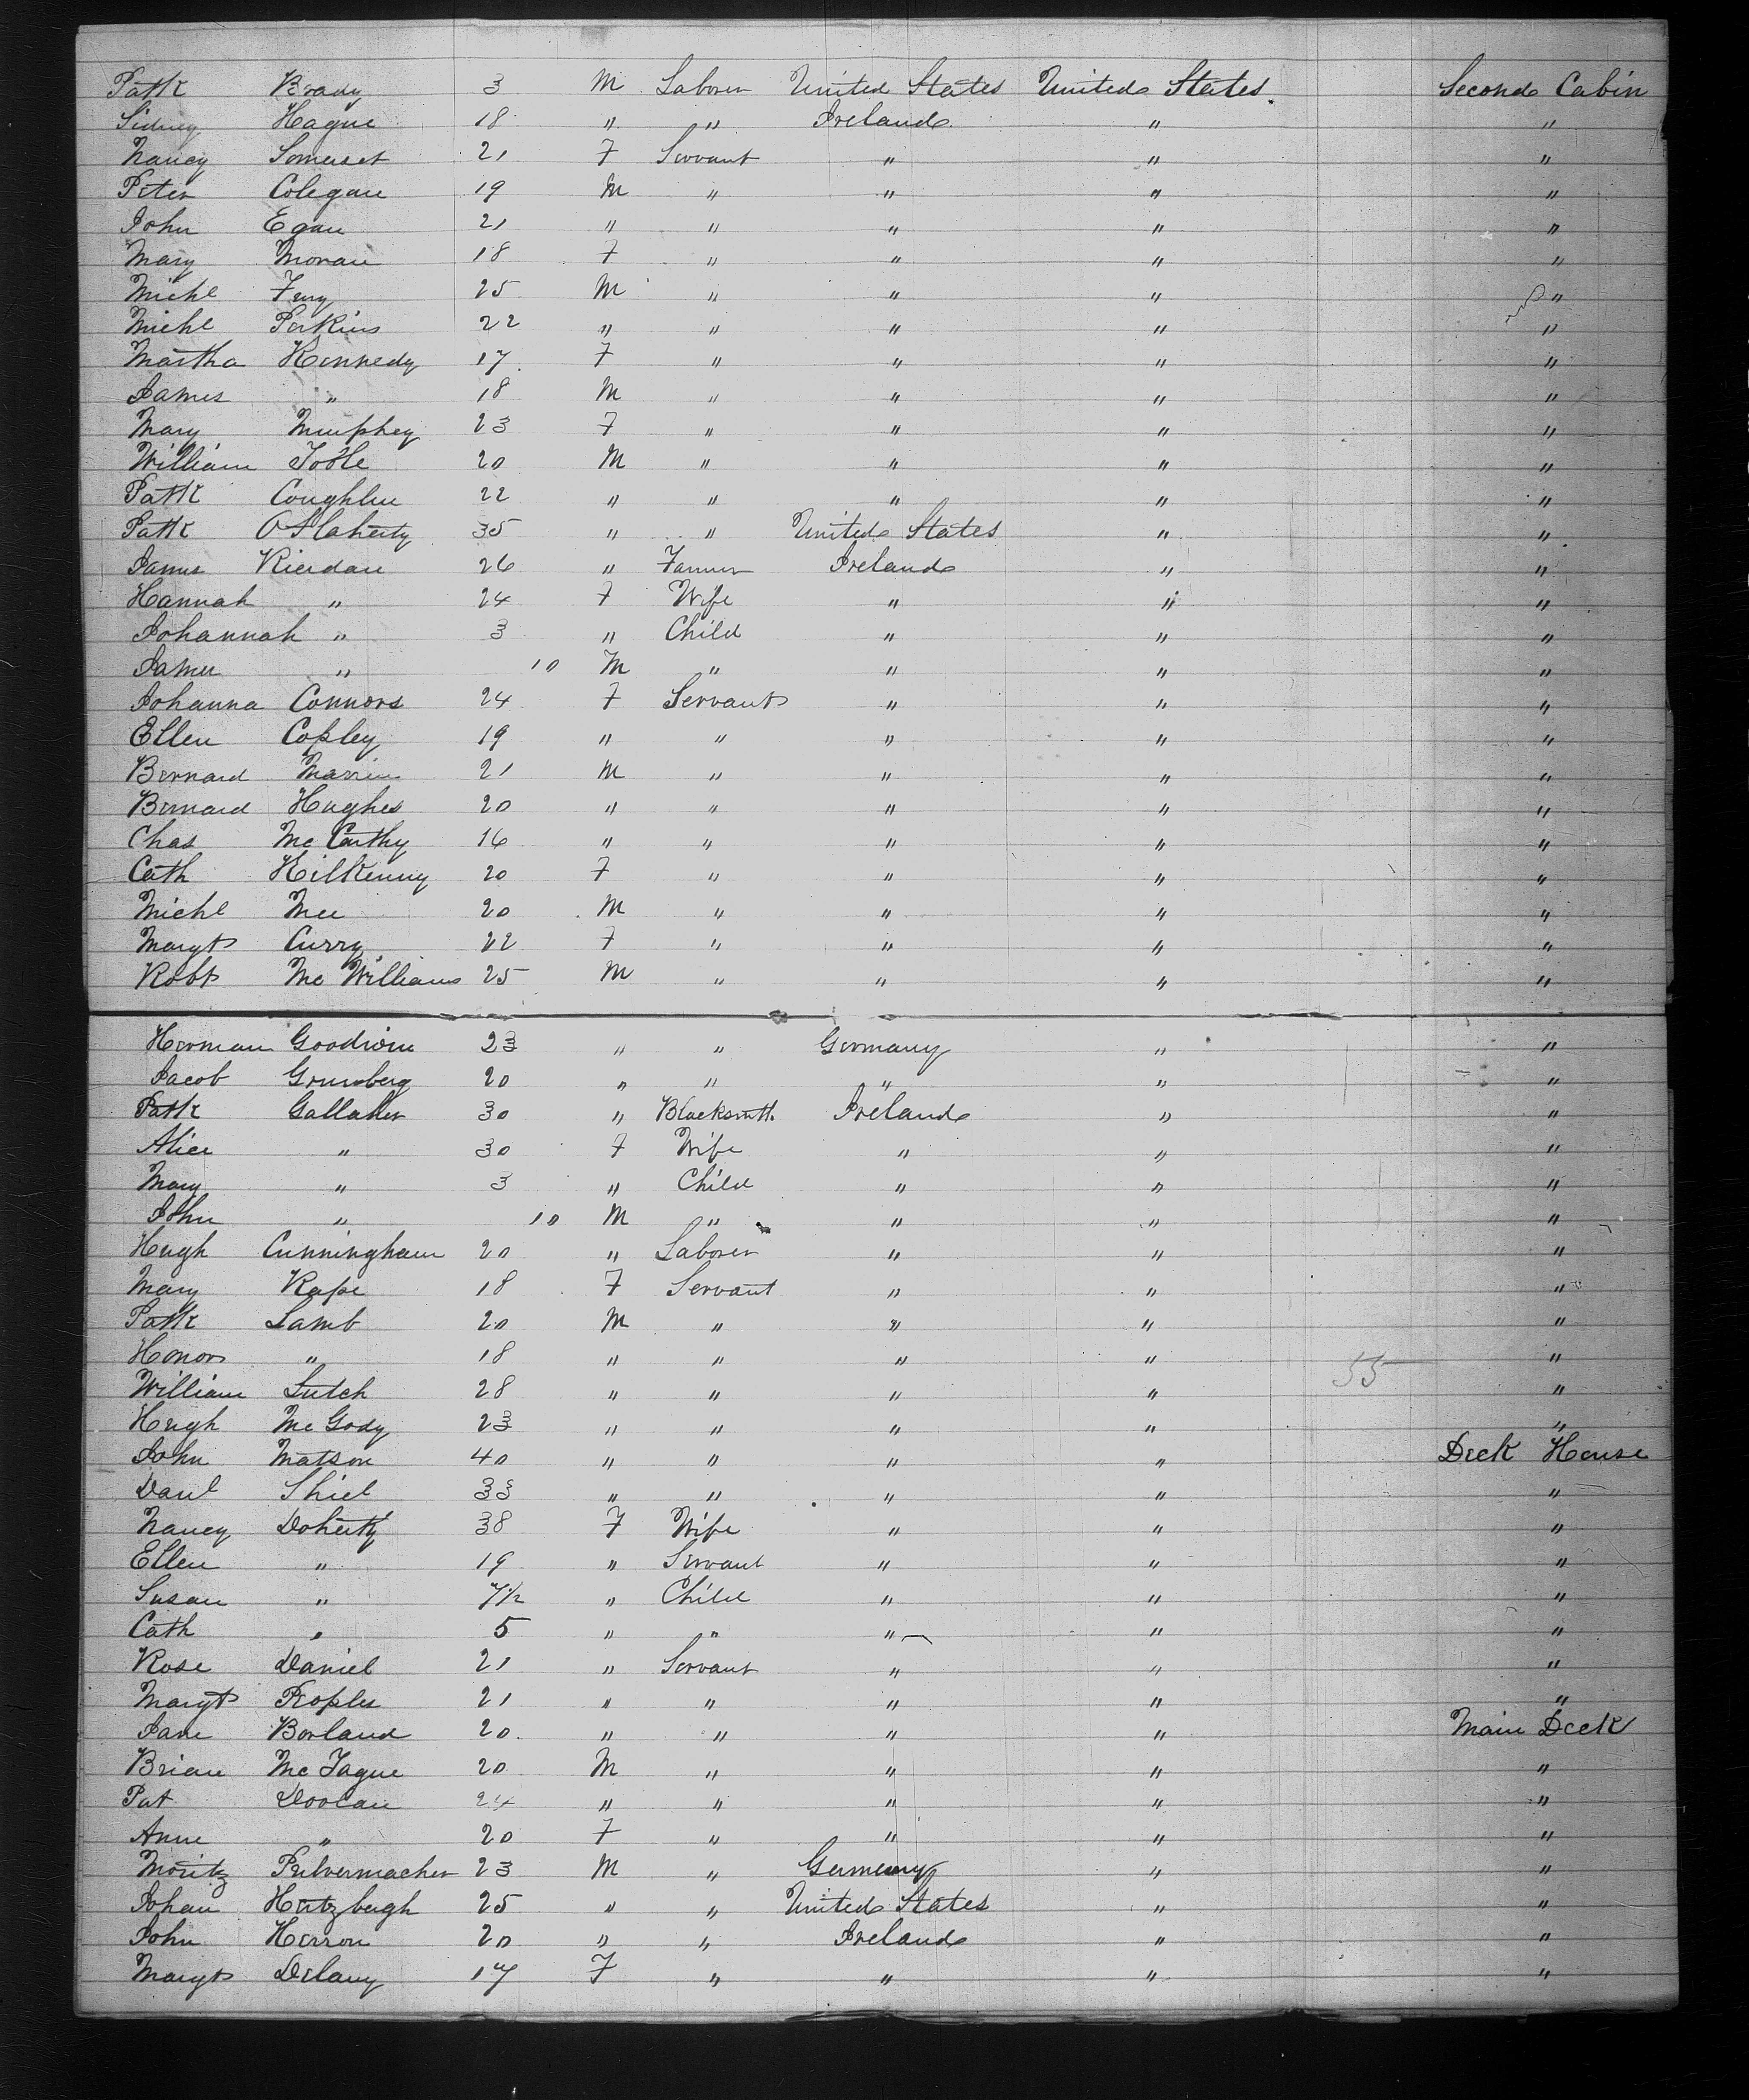 Patk Brady 3 M Laborer United States United States. Second Cabin
Sidney Hague 18 " " Ireland " "
Nancy Somerset 21 F Servant " " "
Peter Colegan 19 M " " " "
John Egan 21 " " " " "
Mary Moran 18 F " " " "
Michl 25 M " " " "
Michl Perkins 22 " " " " "
Martha Kennedy 17 F " " " "
James " 18 M " " " "
Mary Murphey 23 F " " " "
William Toole 20 M " " " "
Patk Coughlin 22 " " " " "
Patk O'Flaherty 35 " " United States " "
James Rierdan 26 " Farmer Ireland " "
Hannah " 24 F Wife " " "
Johannah " 3 " Child " " "
James " 10 M " " " "
Johanna Connors 24 F Servant " " "
Ellen Copley 19 " " " " "
Bernard 21 M " " " "
Bernard Hughes 20 " " " " "
Chas McCarthy 16 " " " " "
Cath Kilkenny 20 F " " " "
Michl Mee 20 M " " " "
Margt Curry 22 F " " " "
Robt McWilliams 25 M " " " "
Herman Goodwin 23 " " Germany " "
Jacob 20 " " " " "
Patk Gallaher 30 " Blacksmith Ireland " "
Alice " 30 F Wife " " "
Mary " 3 " Child " " "
John " 10 M " " " "
Hugh Cunningham 20 " Laborer " " "
Mary Kape 18 F Servant " " "
Patk Lamb 20 M " " " "
Honor " 18 " " " " "
55
William 28 " " " " "
Hugh McGody 23 " " " " "
John Matson 40 " " " " Deck House
Danl Shiel 33 " " " " "
Nancy Doherty 38 F Wife " " "
Ellen " 19 " Servant " " "
Susan " 7½ " Child " " "
Cath " 5 " " " " "
Rose Daniel 21 " Servant " " "
Margt Peoples 21 " " " " "
Jane Borland 20 " " " " Main Deck
Brian McTague 20 M " " " "
Pat Doolan 24 " " " " "
Anne " 20 F " " " "
Moritz Pulvermacher 23 M " Germany " "
Johan Hertzbergh 25 " " United States " "
John Herron 20 " " Ireland " "
Margt Delany 17 F " " " "